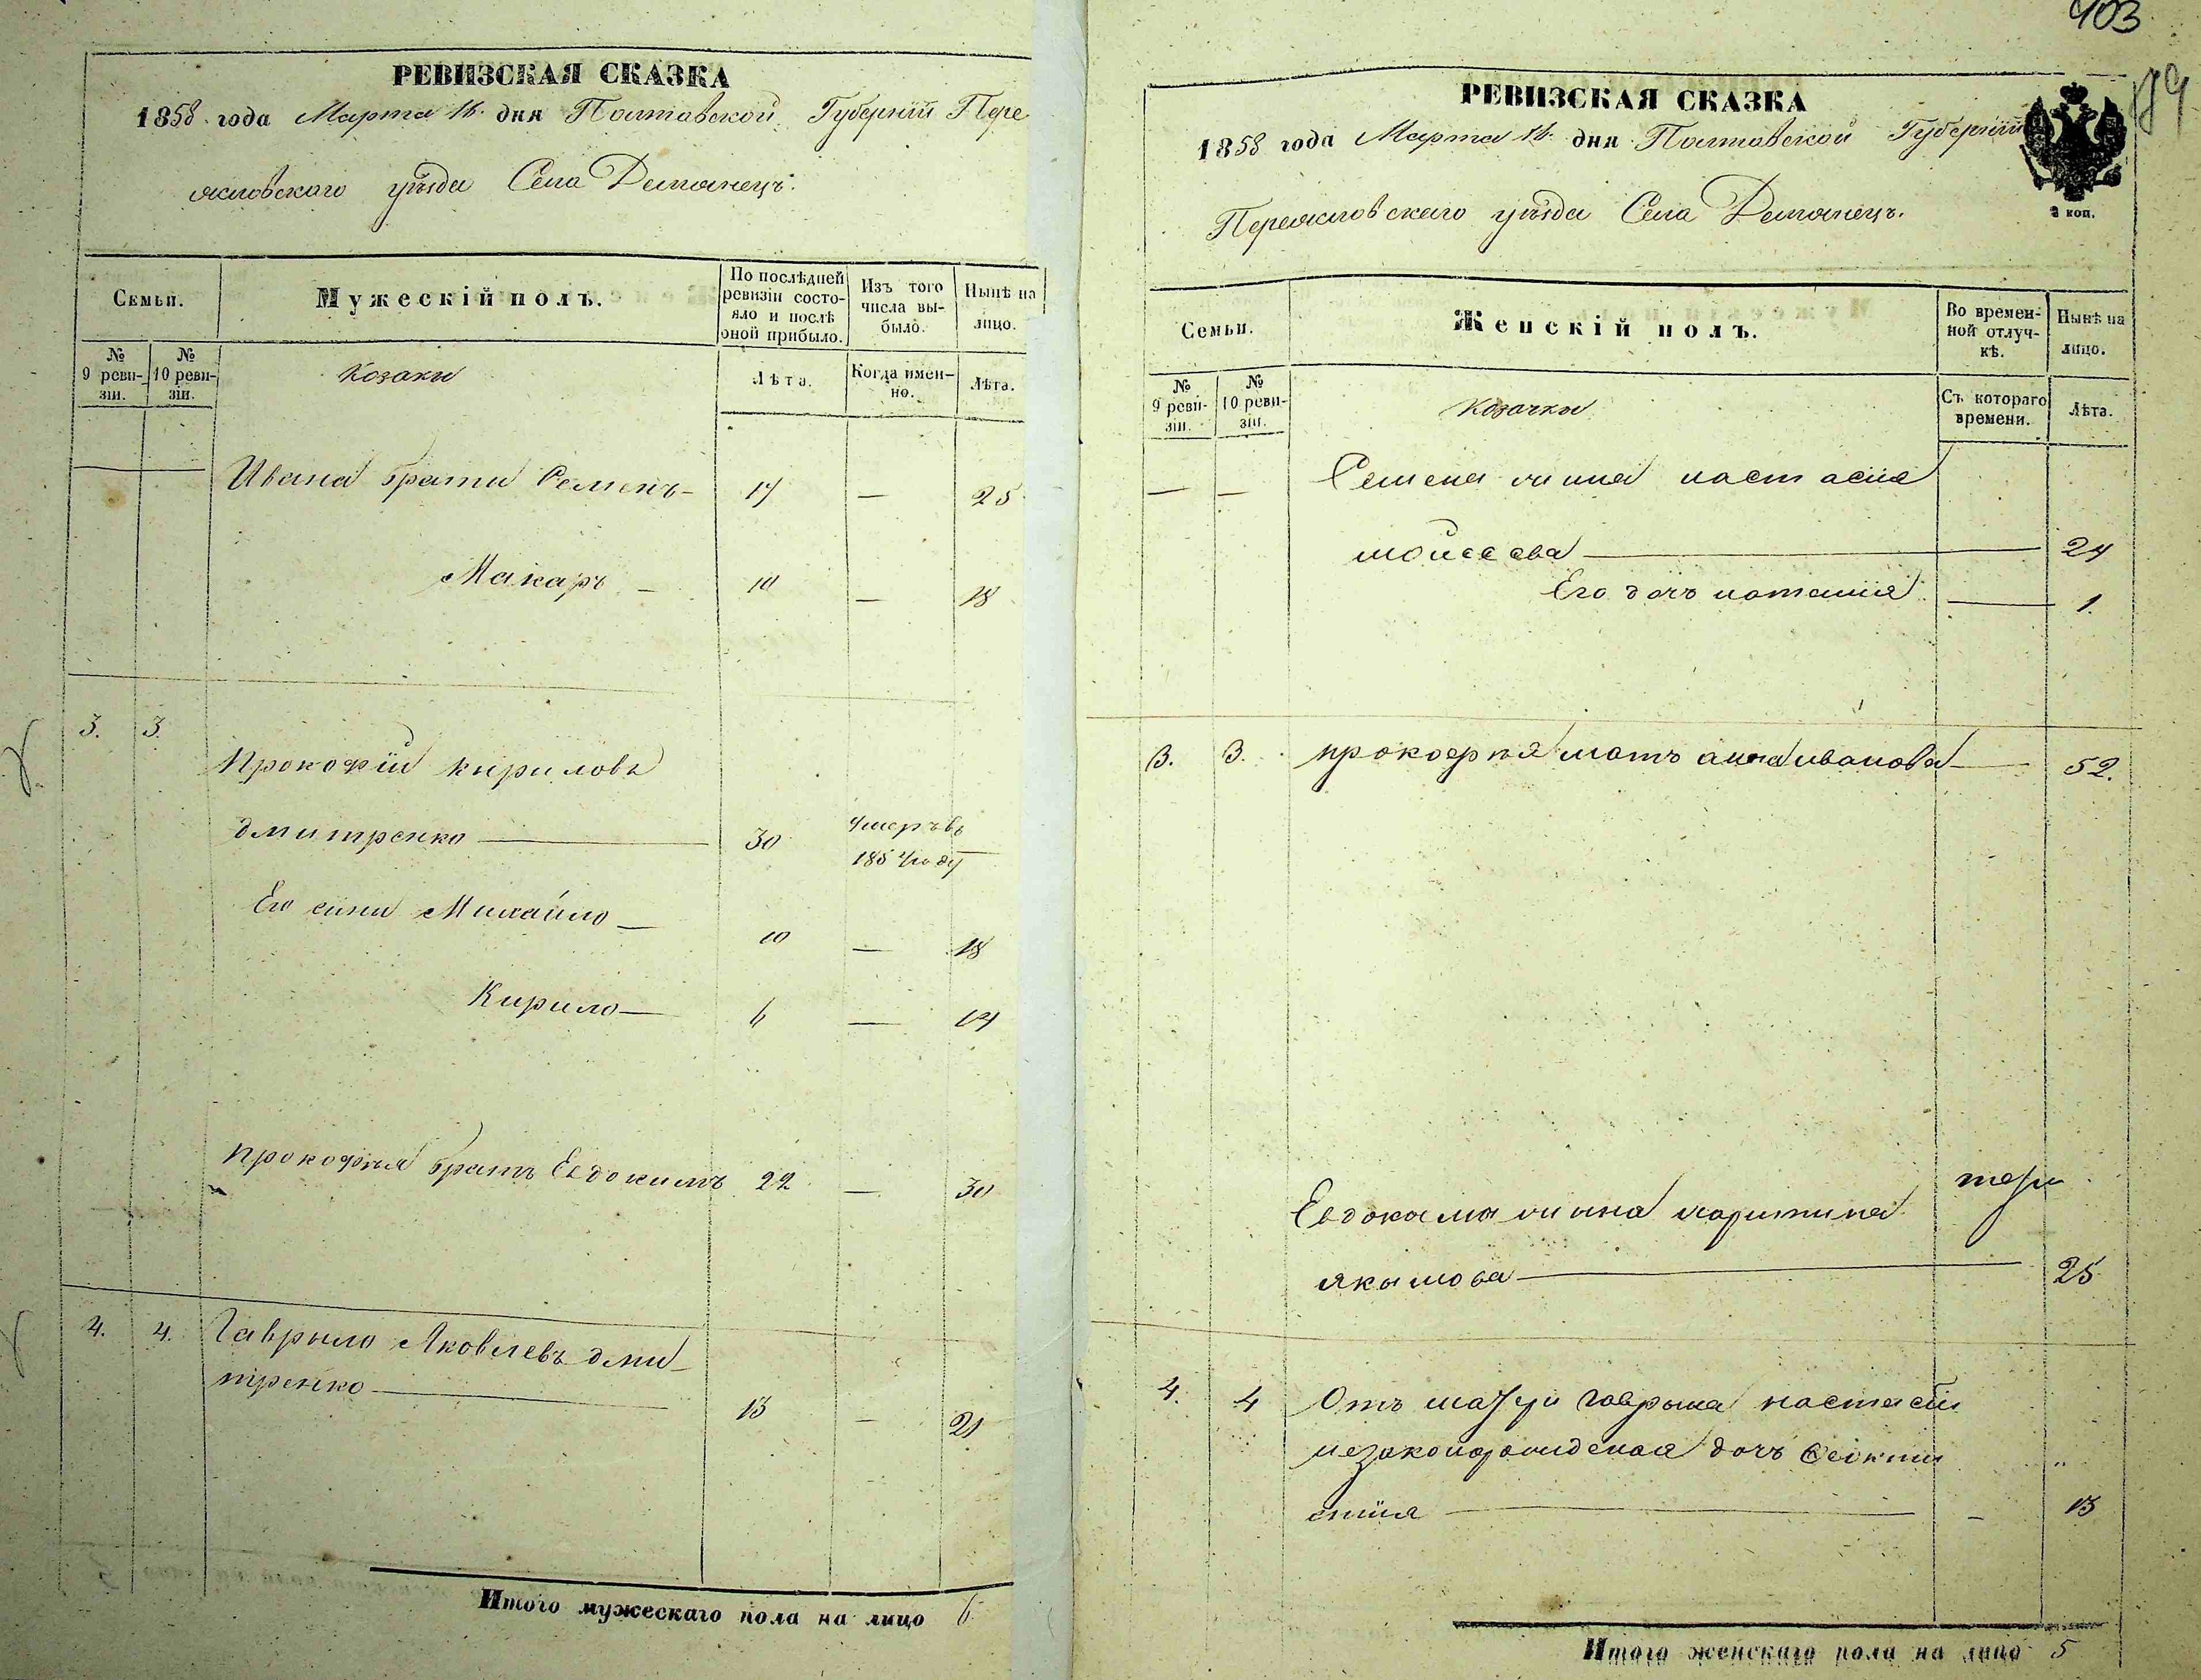 РЕВИЗСКАЯ СКАЗКА
1858 года Марта 16. дня Полтавской Губерніи Пере
яславского уѣзда Села Демянецъ.
Семьи.
Мужескій полъ.
По послѣдней ревизіи состояло и послѣ оной прибыло.
Изъ того числа выбыло.
Нынѣ на лицо.
№ 9 ревизіи.
№ 10 ревизіи.
Козаки
Лѣта.
Когда именно.
Лѣта.
Ивана брати Семенъ – 17 — 25
Макаръ – 10 — 18
3. 3. Прокофій кириловъ
дмитренко — 30 умеръ въ
185 году
Его сини Михайло — 10 — 18
Кирило — 6 — 14
прокофія братъ Евдокимъ 22 — 30
4. 4. Гаврыло Яковлевъ дми
тренко — 13 — 21
Итого мужескаго пола на лицо 6
403
РЕВИЗСКАЯ СКАЗКА
1858 года Марта 16. дня Полтавской Губерніи
Переяславского уѣзда Села Демянецъ.
коп.
Семьи.
Женскій полъ.
Во временной отлучкѣ.
Нынѣ на лицо.
№ 9 ревизіи.
№ 10 ревизіи.
Козачки
Съ котораго времени.
Лѣта.
— — Семена жина настасия
мойсеева — — 24
Его дочъ наталия — 1.
3. 3. прокофия мать анна иванова — 52.
Евдокима жина
якымова — 25
4. 4 Отъ матери гаврыла настасіи
незаконорожденая дочъ
— – 13
Итого женскаго пола на лицо 5